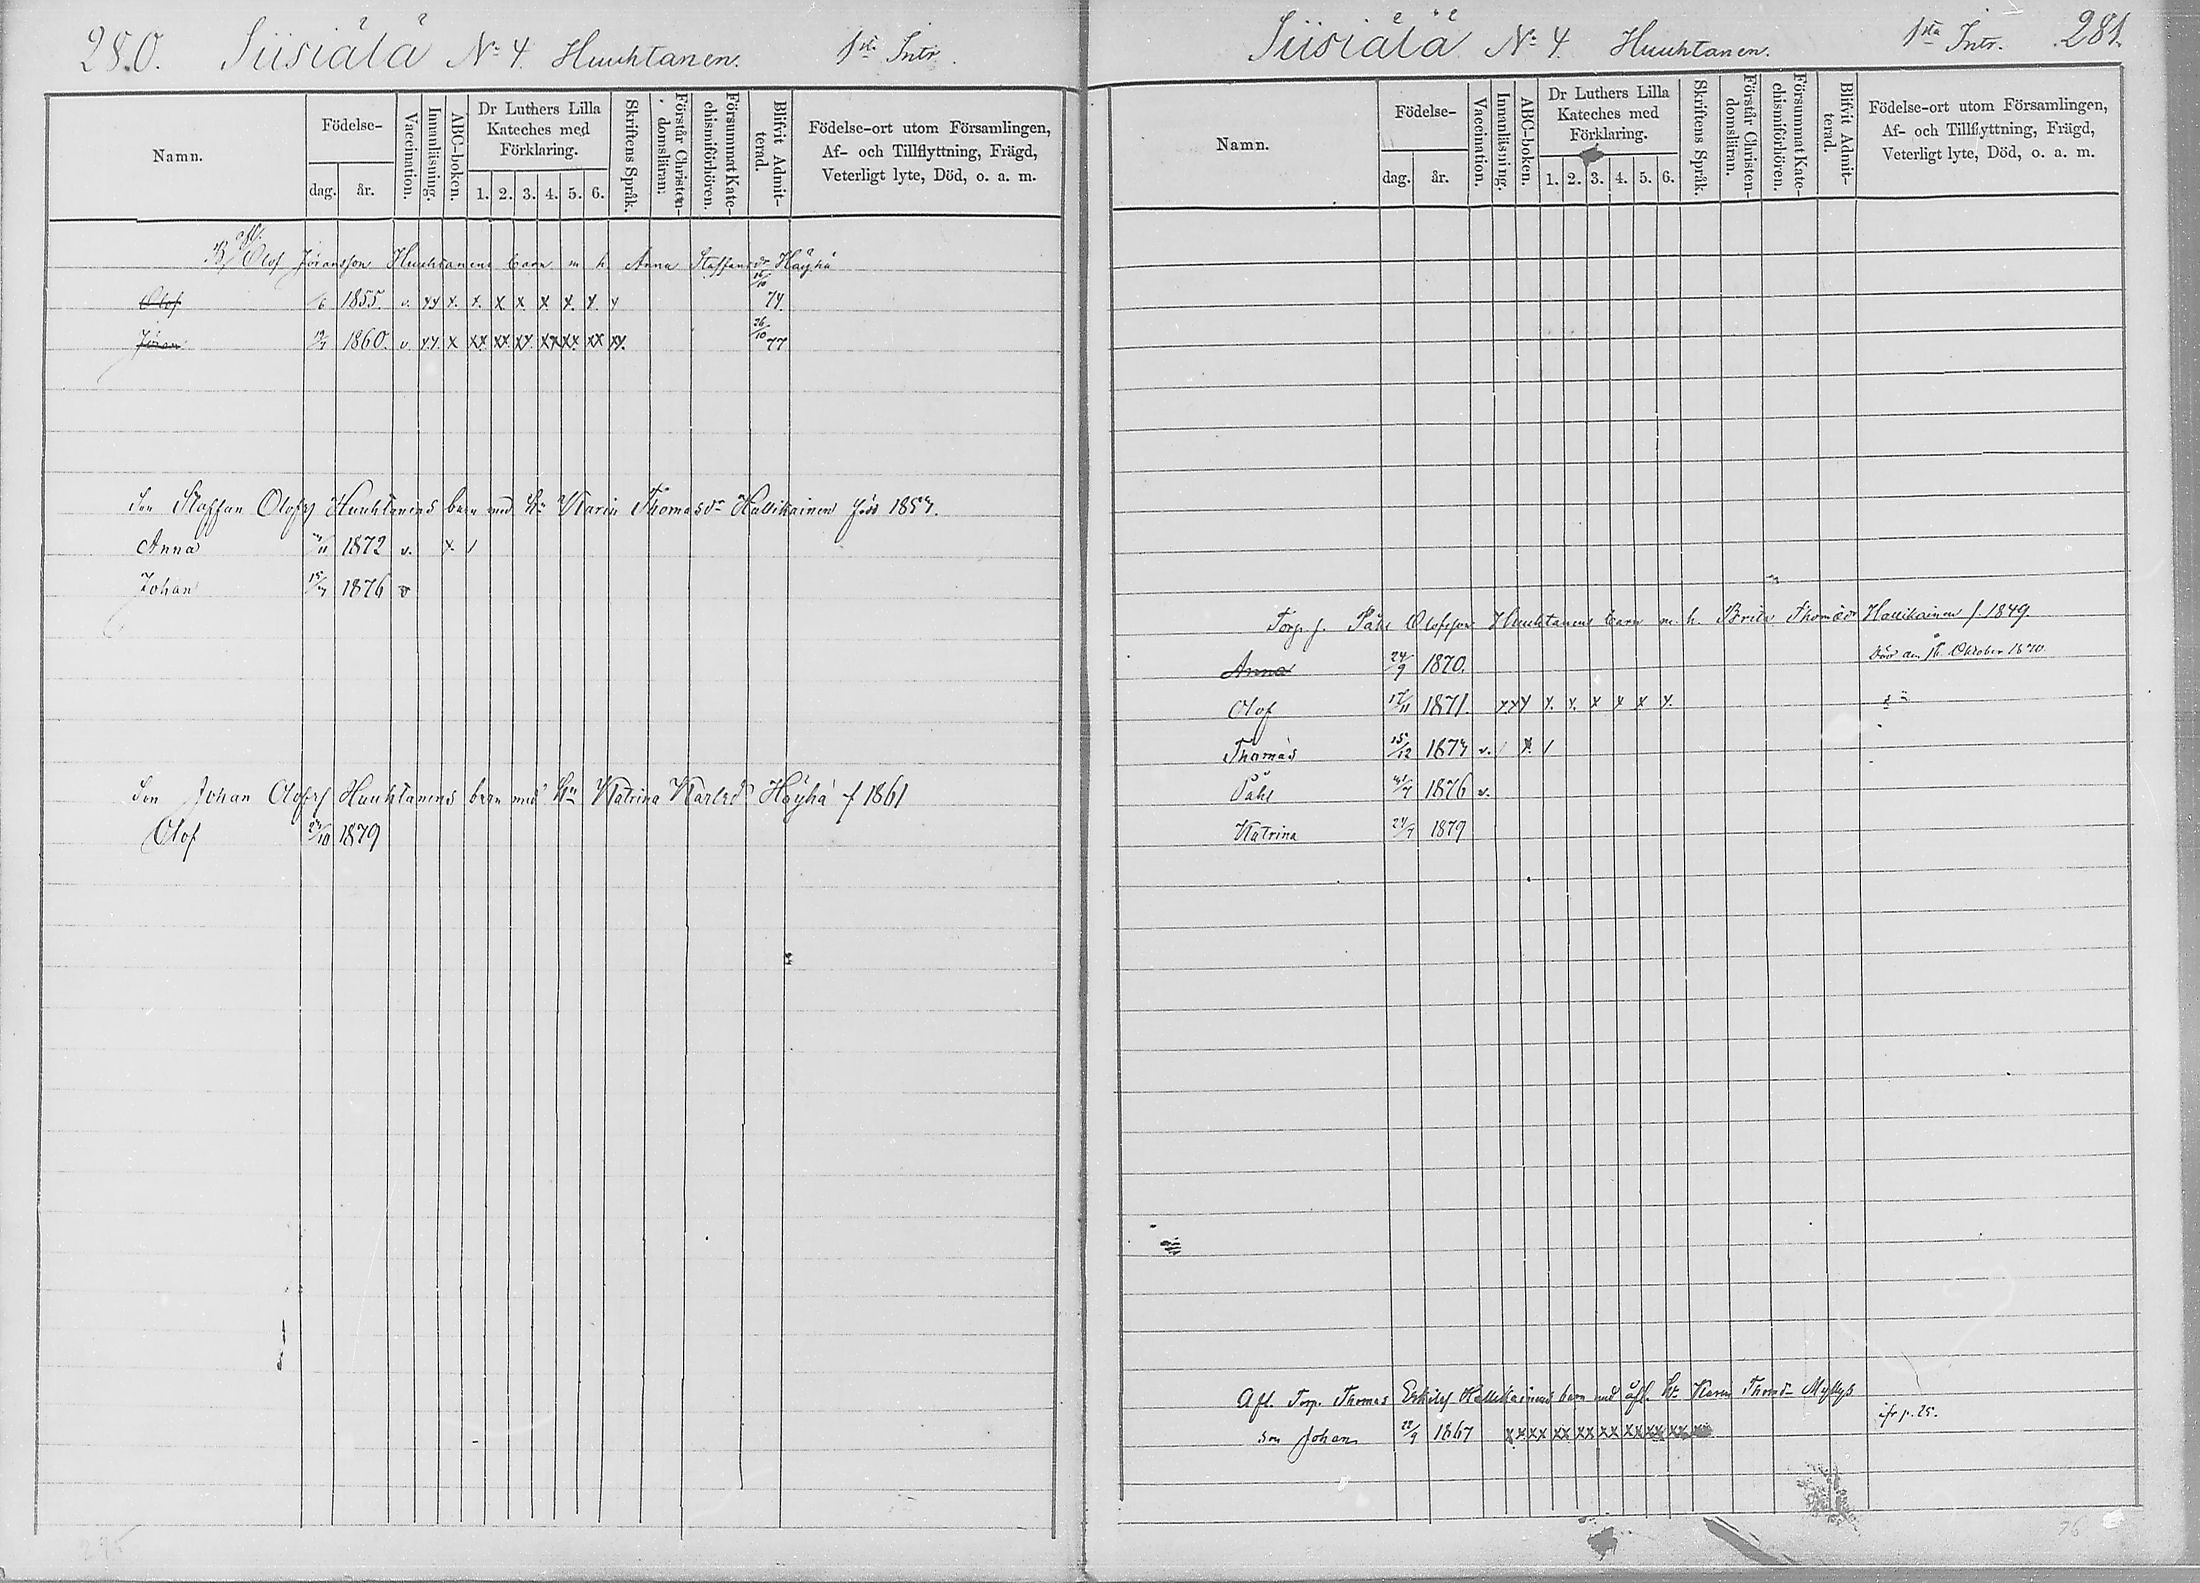 280. Siisiälä № 4. Huuhtanen. 1sta Intr.
Namn.
Födelse-
dag. år.
Vaccination.
Innanläsning.
ABC-boken.
Dr Luthers Lilla
Kateches med
Förklaring.
1. 2. 3. 4. 5. 6.
Skriftens Språk.
Förstår Christen-
domsläran.
Försummat Kate-
chismiförhören.
Blifvit Admit-
terad.
Födelse-ort utom Församlingen,
Af- och Tillflyttning, Frägd,
Veterligt lyte, Död, o. a. m.
Olof Jöransson Huuhtanens barn m h. Anna Staffansdr Häyhä
Olof 1855. v. xx x. x. x x x x. x. x 74.
Jöran 1860. v xx. x xx xx xx xx xx xx xx. 26/10 77
Son Staffan Olofss Huuhtanens barn med hu Karin Thomasdr Hallikainen född 1854.
Anna 1872 v. x /
Johan 1876 v
Son Johan Olofss Huuhtanens barn med hu Katrina Karlsdr Häyhä f 1861
Olof 1879
Siisiälä № 4. Huuhtanen. 1sta Intr. 281.
Namn.
Födelse-
dag. år.
Vaccination.
Innanläsning.
ABC-boken.
Dr Luthers Lilla
Kateches med
Förklaring.
1. 2. 3. 4. 5. 6.
Skriftens Språk.
Förstår Christen-
domsläran.
Försummat Kate-
chismiförhören.
Blifvit Admit-
terad.
Födelse-ort utom Församlingen,
Af- och Tillflyttning, Frägd,
Veterligt lyte, Död, o. a. m.
Torp. f. Påhl Olofsson Huuhtanens barn m. h. Brita Thomasdr Hallikainen f 1849
Anna 24/9 1870. Död den Oktober 1870.
Olof 17/11 1871. x x x x. x. x x x x.
Thomas 15/12 1874 v. / x. /
Påhl 1876 v.
Katrina 24/7 1879
Afl. Torp. Thomas Eskilss Hallikainens barn med afl. h. Karin Thomdr Myllys
son Johan 22/9 1867 xx xx xx xx xx xx xx xx p. 25.